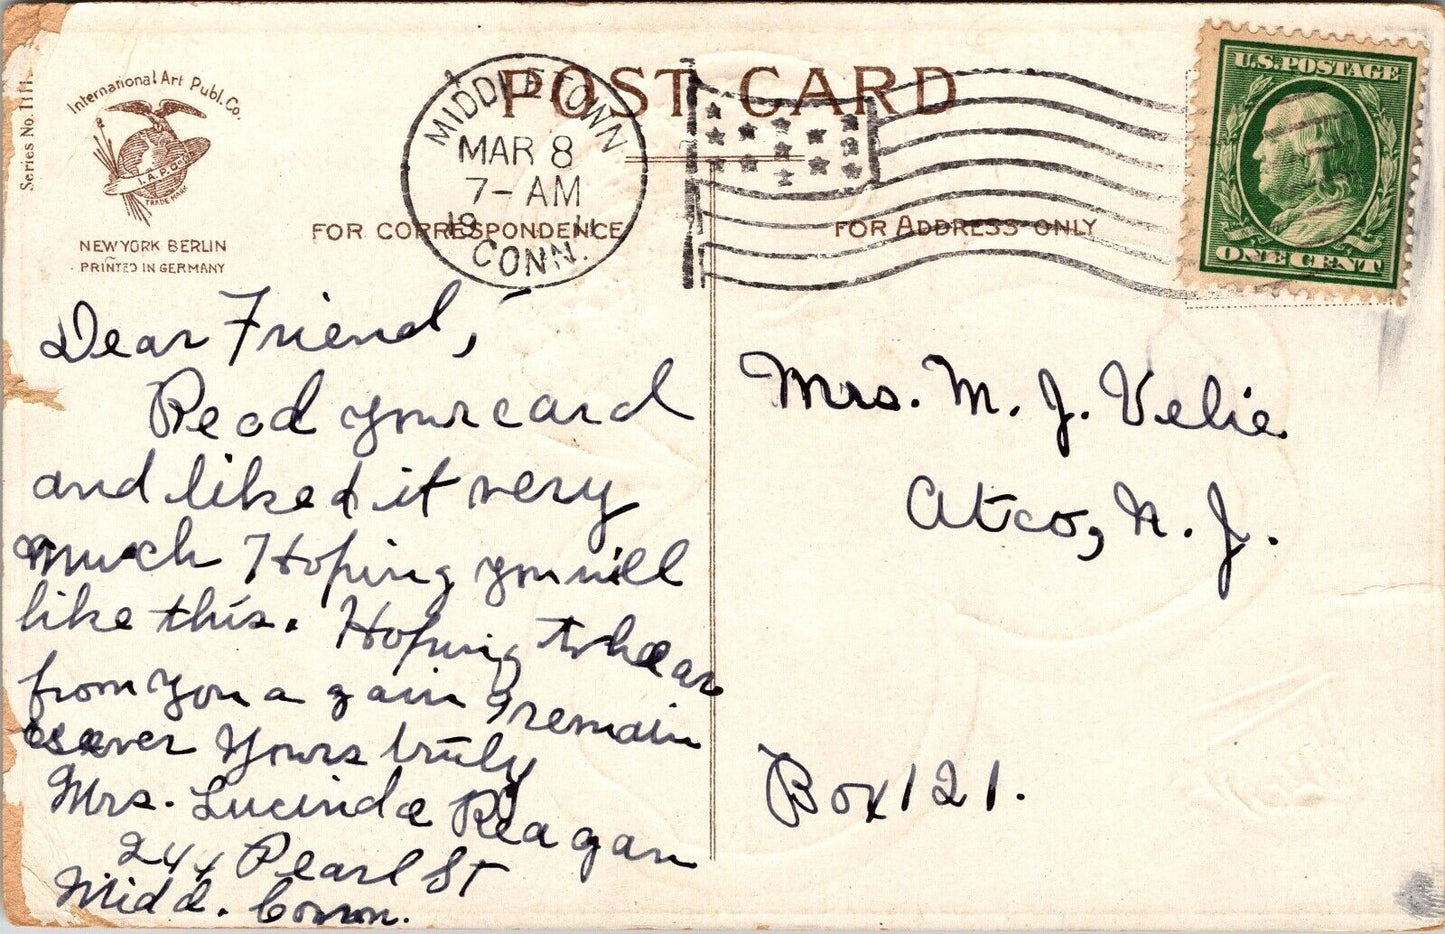 Series No. 1111.
International Art Publ. Co.
I.A.P.CO.
TRADE MARK
NEW YORK BERLIN
PRINTED IN GERMANY
POST CARD
FOR CORRESPONDENCE
FOR ADDRESS ONLY
MIDDLETOWN
MAR 8
7-AM
19 11
CONN.
U.S. POSTAGE
ONE CENT
Dear Friend,
Read your card
and liked it very
much Hoping you will
like this. Hoping to hear
from you again I remain
as ever Yours truly
Mrs. Lucinda Reagan
244 Pearl St
Midd. Conn.
Mrs. M. J. Velie
Atco, N. J.
Box 121.